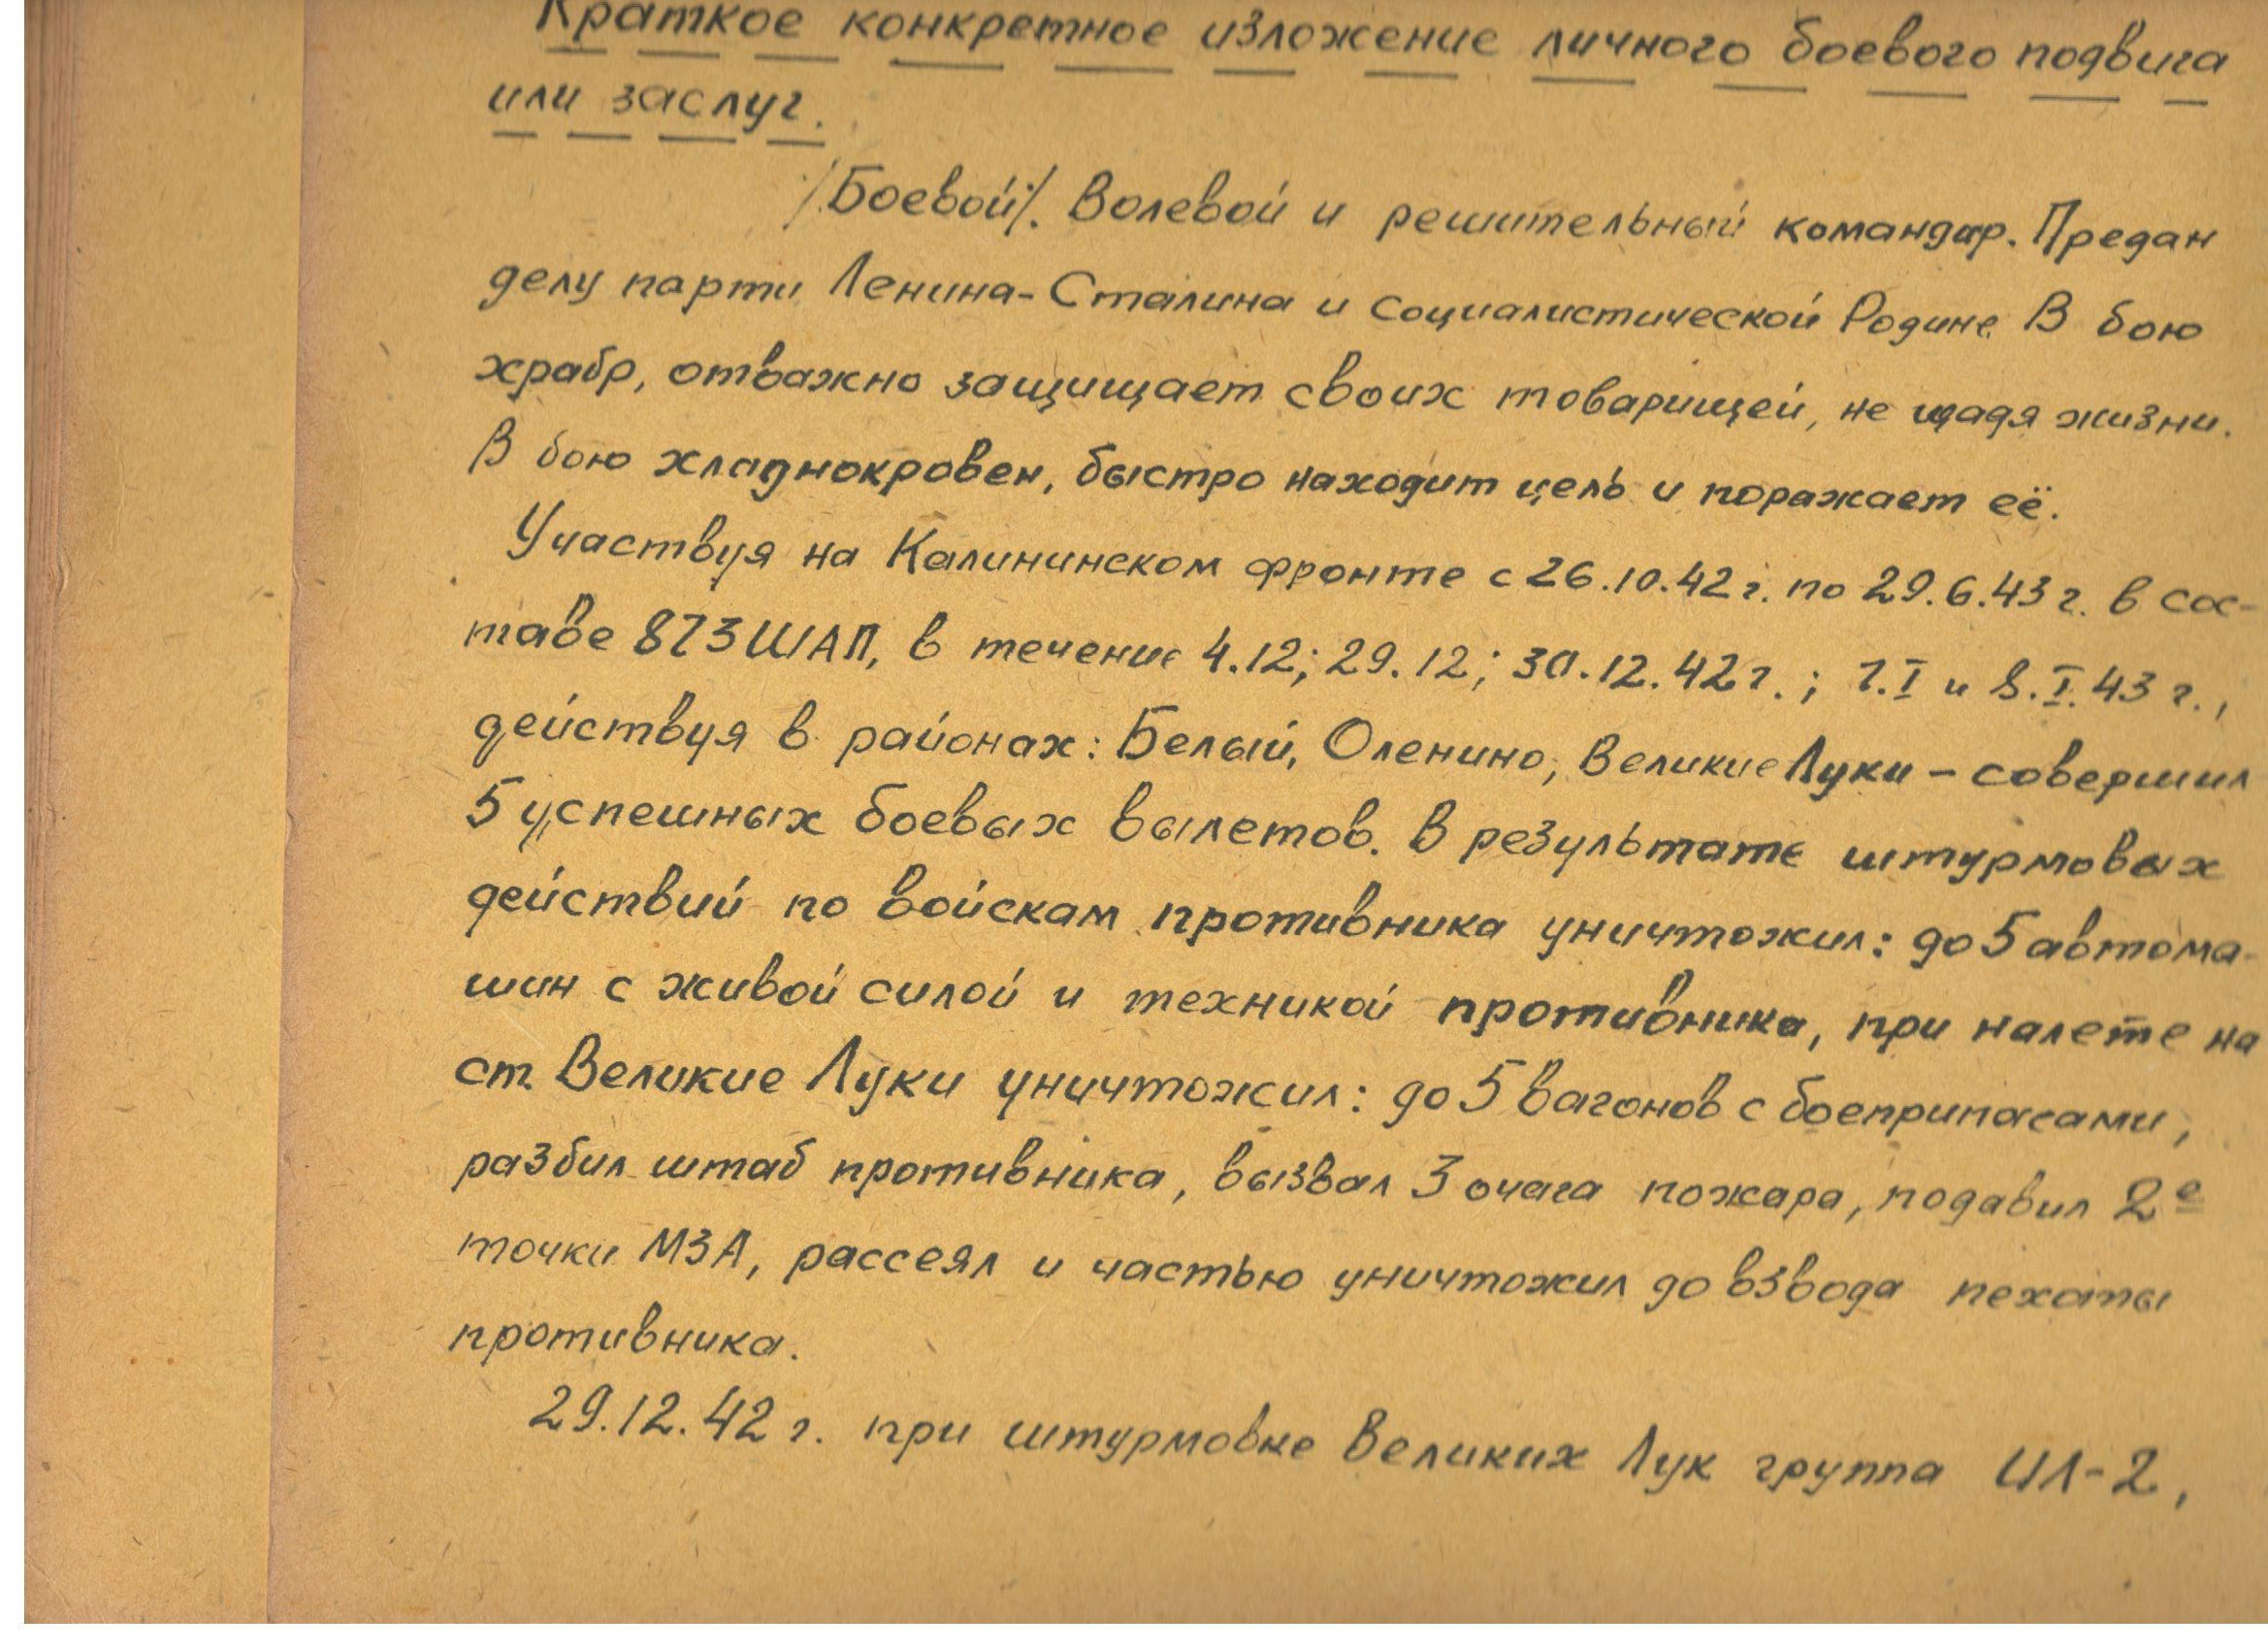 Краткое конкретное изложение личного боевого подвига
или заслуг.
/Боевой/. Волевой и решительный командир. Предан
делу парти Ленина-Сталина и социалистической Родине. В бою
храбр, отважно защищает своих товарищей, не щадя жизни.
В бою хладнокровен, быстро находит цель и поражает её.
Участвуя на Калининском фронте с 26.10.42 г. по 29.6.43 г. в сос-
таве 873 ШАП, в течение 4.12; 29.12; 30.12.42 г.; 7.I и 8.I.43 г.,
действуя в районах: Белый, Оленино, Великие Луки – совершил
5 успешных боевых вылетов. В результате штурмовых
действий по войскам противника уничтожил: до 5 автома-
шин с живой силой и техникой противника, при налете на
ст. Великие Луки уничтожил: до 5 вагонов с боеприпасами,
разбил штаб противника, вызвал 3 очага пожара, подавил 2е
точки МЗА, рассеял и частью уничтожил до взвода пехоты
противника.
29.12.42 г. при штурмовке Великих Лук группа ИЛ-2,